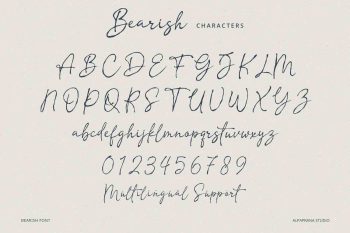 Bearish CHARACTERS
ABCDEFGHIJKLM
NOPQRSTUVWXYZ
abcdefghijklmnopqrstuvwxyz
0123456789
Multilingual Support
BEARISH FONT ALPAPRANA STUDIO